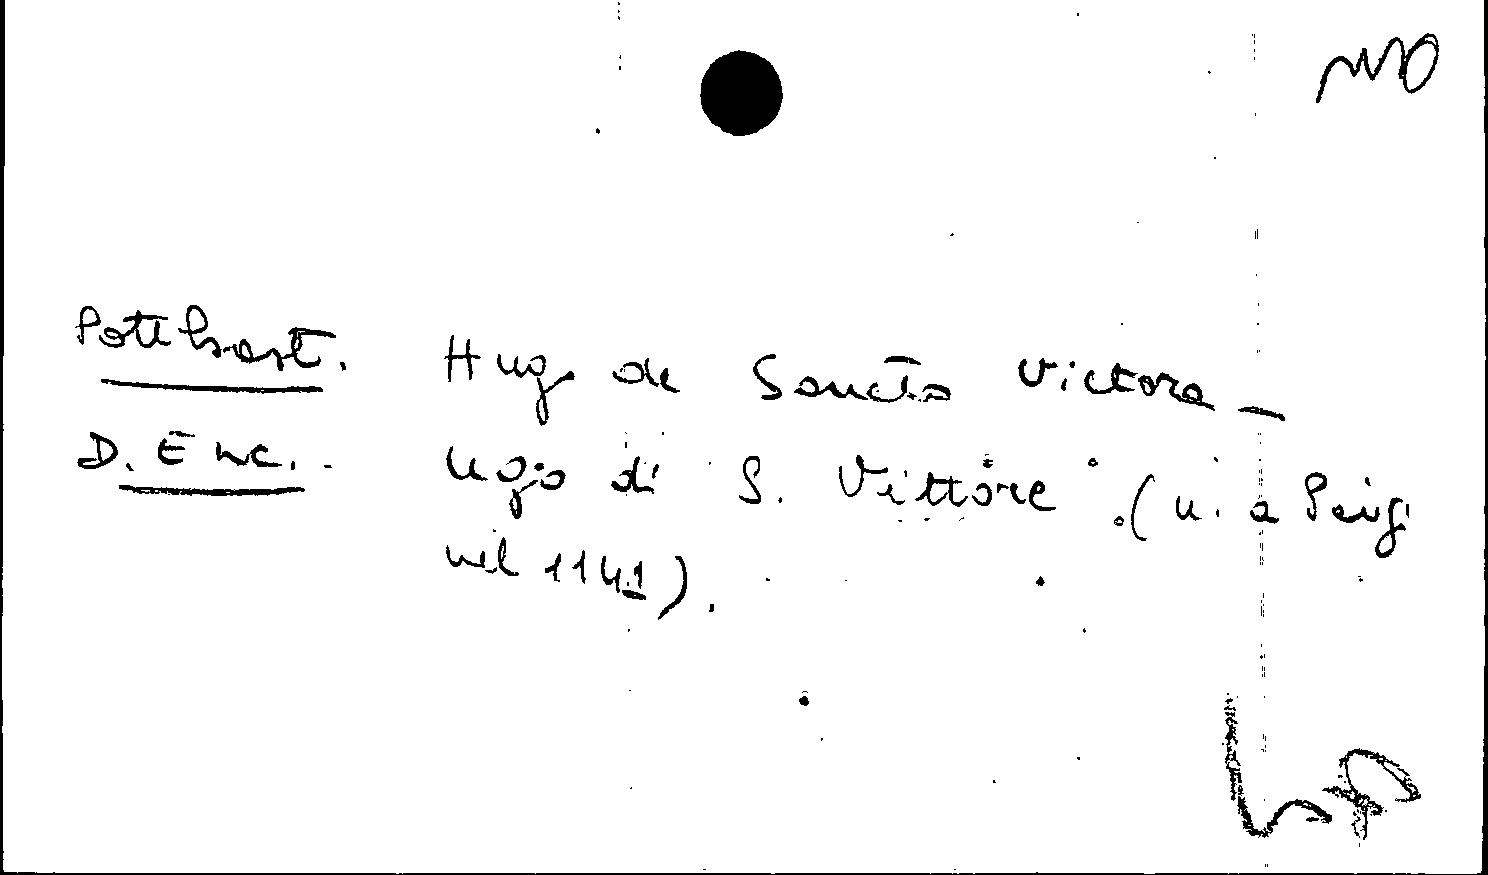 Potthast. Hug. de Sancto Victore –
D. Enc. Ugo di S. Vittore (n. a Parigi
nel 1141).